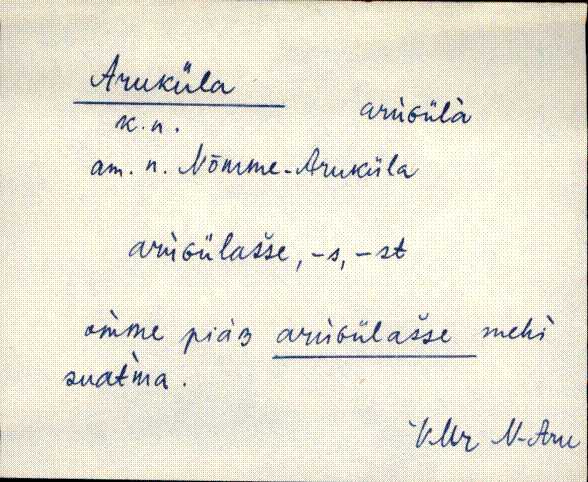 Aruküla arùɢülà
k.n.
am. n. Nõmme-Aruküla
arùɢülašse, -s, -st
omme piäᴢ arùɢülašse mehi
suatma.
VMr N-Aru